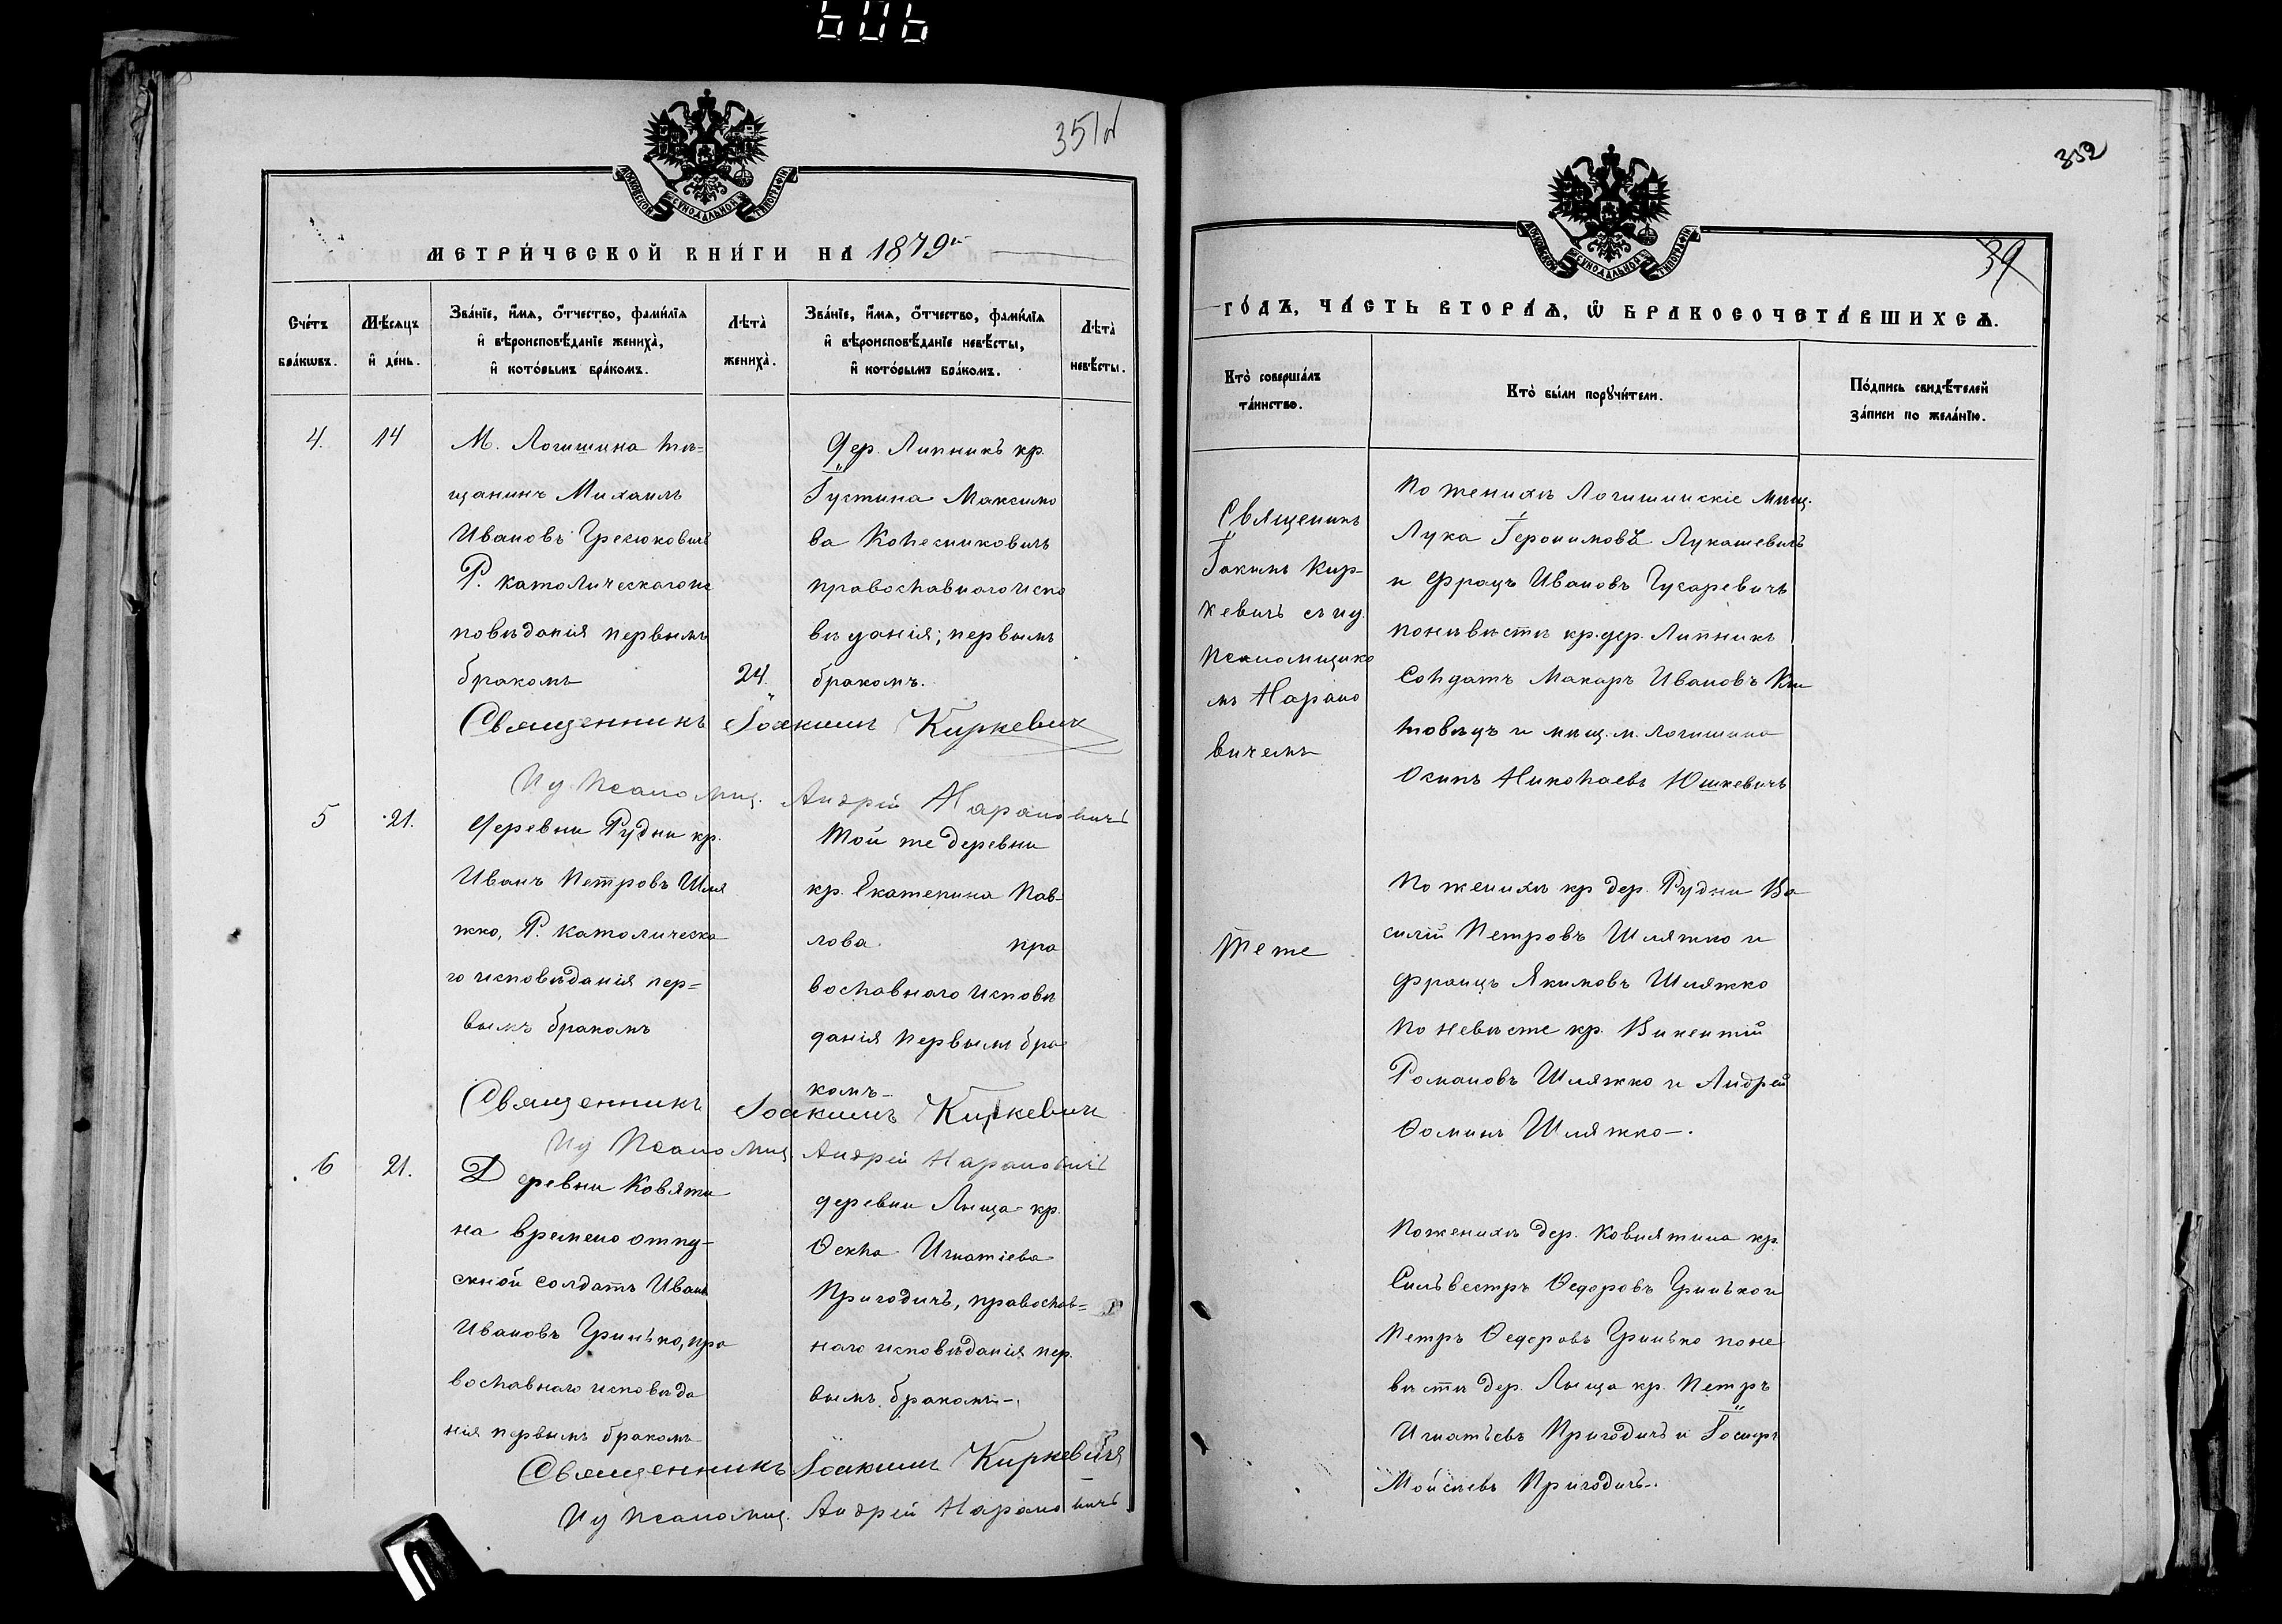 606
351 об
МОСКОВСКОЙ СѴНОДАЛЬНОЙ ТИПОГРАФІИ
МЕТРИ́ЧЕСКОЙ КНИ́ГИ НА 1879й
Сче́тъ бра́кѡвъ.
Мѣ́сяцъ и҆ де́нь.
Зва́нїе, и҆́мѧ, ѻ҆́тчество, фами́лїѧ
и҆ вѣроисповѣ́данїе жениха̀,
и҆ кото́рымъ бра́комъ.
Лѣта̀ жениха̀.
Зва́нїе, и҆́мѧ, ѻ҆́тчество, фами́лїѧ
и҆ вѣроисповѣ́данїе невѣ́сты,
и҆ кото́рымъ бра́комъ.
Лѣта̀ невѣ́сты.
4.
14
М. Логишина мѣ=
щанинъ Михаилъ
Ивановъ Гресюковичъ
Р. католическаго ис
повѣданія первымъ
бракомъ
24.
Дер. Липникъ кр.
Іустина Максимо
ва Колесниковичъ
православнаго испо
вѣданія; первымъ
бракомъ.
Священникъ Іоакимъ Киркевичъ
И д Псаломщ. Андрей Нарановичъ
5
21.
Деревни Рудни кр.
Иванъ Петровъ Шля
жко, Р. католическа
го исповѣданія пер=
вымъ бракомъ
Той же деревни
кр. Екатерина Пав-
лова пра
вославнаго исповѣ
данія первымъ бра
комъ-
Священникъ Іоакимъ Киркевичъ
И д Псаломщ. Андрей Нарановичъ
6
21.
Деревни Ковяти
на временоотпу-
скной солдатъ Иванъ
Ивановъ Гринько, пра
вославнаго исповѣда
нія первымъ бракомъ
деревни Лыща кр.
Ѳекла Игнатіева
Пригодичъ, православ=
наго исповѣданія пер.
вымъ бракомъ-.
Священникъ Іоакимъ Киркевичъ
И д Псаломщ. Андрей Нарановичъ
352
39
МОСКОВСКОЙ СѴНОДАЛЬНОЙ ТИПОГРАФІИ
ГО́ДЪ, ЧА́СТЬ ВТОРА́Ѧ, Ѽ БРАКОСОЧЕТА́ВШИХСѦ.
Кто̀ соверша́лъ
та́инство.
Кто̀ бы́ли порꙋчи́тели.
По́дпись свидѣ́телей
за́писи по жела́нїю.
Священикъ
Іакимъ Кир-
кевичъ съ и д.
псаломщико
мъ Нарано
вичемъ
По женихѣ Логишинскіе мѣщ.
Лука Іеронимовъ Лукашевичъ
и Францъ Ивановъ Гусаревичъ
по невѣстѣ кр. дер. Липникъ
Солдатъ Макаръ Ивановъ Ки
товецъ и мѣщ. м. Логишина
Осипъ Николаевъ Юшкевичъ
Теже
По женихѣ кр дер. Рудни Ва
силій Петровъ Шляжко и
Францъ Якимовъ Шляжко
По невѣсте кр. Викентій
Романовъ Шляжко и Андрей
Ѳоминъ Шляжко-.
По женихѣ дер. Ковнятина кр.
Сильвестръ Ѳедоровъ Гринько и
Петръ Ѳедоровъ Гринько по не
вѣстѣ дер. Лыща кр. Петръ
Игнатьевъ Пригодичъ и Іосифъ
Мойсѣевъ Пригодичъ-.